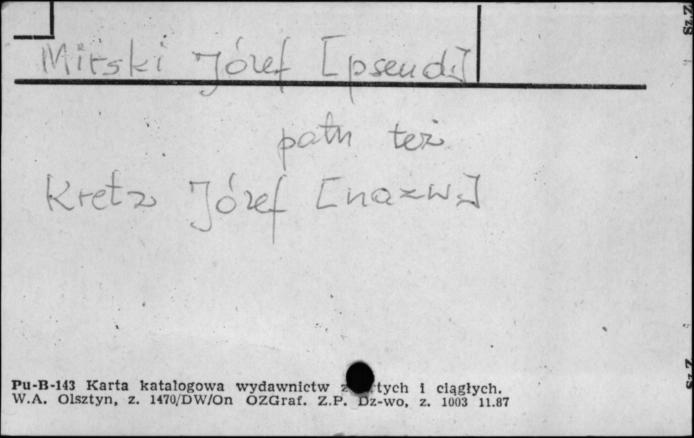 Mirski Józef [pseud.]
patrz też
Kretz Józef [nazw.]
Pu-B-143 Karta katalogowa wydawnictw zwartych i ciągłych.
W.A. Olsztyn, z. 1470/DW/On OZGraf. Z.P. Dz-wo, z. 1003 11.87